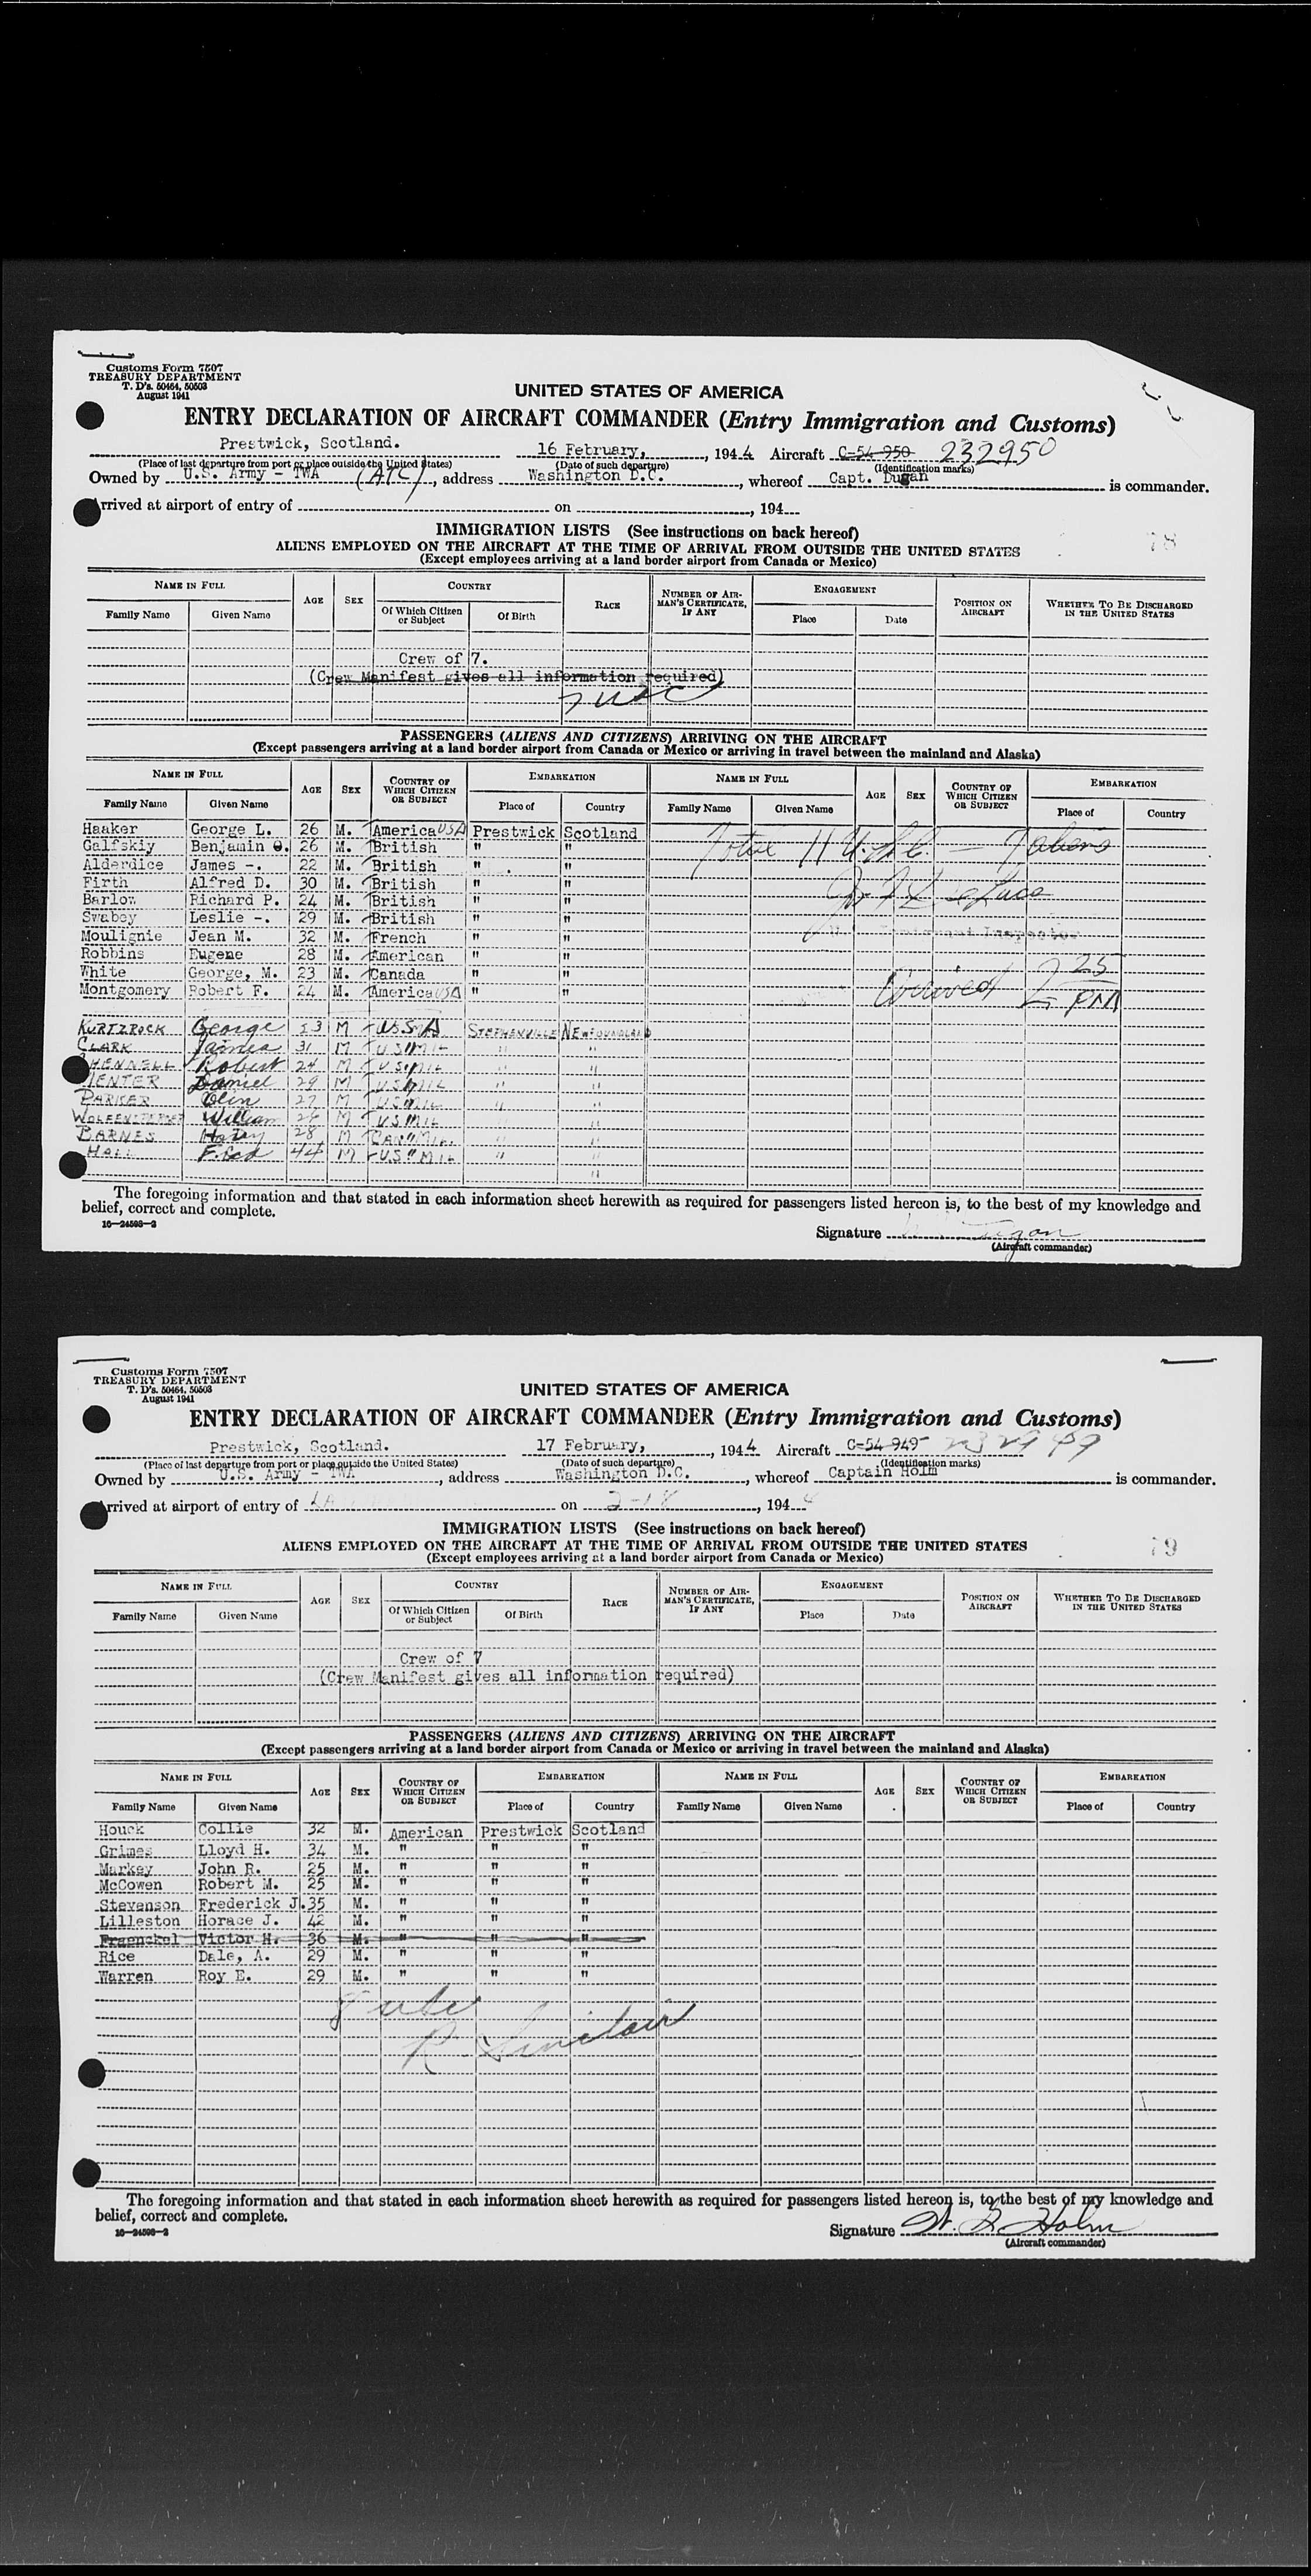 Customs Form 7507
TREASURY DEPARTMENT
T. D's. 50464, 50503
August 1941
UNITED STATES OF AMERICA
ENTRY DECLARATION OF AIRCRAFT COMMANDER (Entry Immigration and Customs)
Prestwick, Scotland. 16 February, 1944 Aircraft C-54 950 232950
(Place of last departure from port or place outside the United States) (Date of such departure) (Identification marks)
Owned by U.S. Army - TWA (ATC), address Washington D.C., whereof Capt. Dugan is commander.
Arrived at airport of entry of on , 194
IMMIGRATION LISTS (See instructions on back hereof)
78
ALIENS EMPLOYED ON THE AIRCRAFT AT THE TIME OF ARRIVAL FROM OUTSIDE THE UNITED STATES
(Except employees arriving at a land border airport from Canada or Mexico)
NAME IN FULL AGE SEX COUNTRY RACE NUMBER OF AIRMAN'S CERTIFICATE, IF ANY ENGAGEMENT POSITION ON AIRCRAFT WHETHER TO BE DISCHARGED IN THE UNITED STATES
Family Name Given Name Of Which Citizen or Subject Of Birth Place Date
Crew of 7.
(Crew Manifest gives all information required)
7 USC
PASSENGERS (ALIENS AND CITIZENS) ARRIVING ON THE AIRCRAFT
(Except passengers arriving at a land border airport from Canada or Mexico or arriving in travel between the mainland and Alaska)
NAME IN FULL AGE SEX COUNTRY OF WHICH CITIZEN OR SUBJECT EMBARKATION NAME IN FULL AGE SEX COUNTRY OF WHICH CITIZEN OR SUBJECT EMBARKATION
Family Name Given Name Place of Country Family Name Given Name Place of Country
Haaker George L. 26 M. America USA Prestwick Scotland
Galfskiy Benjamin O. 26 M. British " "
Total 11 U.S.C. - 7 aliens
Alderdice James -. 22 M. British " "
Firth Alfred D. 30 M. British " "
Barlow Richard P. 24 M. British " "
Swabey Leslie -. 29 M. British " "
Moulignie Jean M. 32 M. French " "
Immigrant Inspector
Robbins Eugene 28 M. American " "
White George, M. 23 M. Canada " "
Arrived 2 25 PM
Montgomery Robert F. 24 M. America USA " "
KURTZROCK George 23 M USA STEPHENVILLE NEWFOUNDLAND
CLARK James 31 M U.S. MIL "
HENNELL Robert 24 M U.S. MIL "
Daniel 29 M U.S. MIL "
PARKER Olin 27 M U.S. MIL " "
William 26 M U.S. MIL " "
BARNES Harry 28 M CAN MIL. " "
HALL Fred 44 M U.S. MIL " "
"
The foregoing information and that stated in each information sheet herewith as required for passengers listed hereon is, to the best of my knowledge and
belief, correct and complete.
16-24508-2
Signature Dugan
(Aircraft commander)
Customs Form 7507
TREASURY DEPARTMENT
T. D's. 50464, 50503
August 1941
UNITED STATES OF AMERICA
ENTRY DECLARATION OF AIRCRAFT COMMANDER (Entry Immigration and Customs)
Prestwick, Scotland. 17 February, 1944 Aircraft C-54 949 232949
(Place of last departure from port or place outside the United States) (Date of such departure) (Identification marks)
Owned by U.S. Army - TWA, address Washington D.C., whereof Captain Holm is commander.
Arrived at airport of entry of LA on 2-18, 1944
IMMIGRATION LISTS (See instructions on back hereof)
79
ALIENS EMPLOYED ON THE AIRCRAFT AT THE TIME OF ARRIVAL FROM OUTSIDE THE UNITED STATES
(Except employees arriving at a land border airport from Canada or Mexico)
NAME IN FULL AGE SEX COUNTRY RACE NUMBER OF AIRMAN'S CERTIFICATE, IF ANY ENGAGEMENT POSITION ON AIRCRAFT WHETHER TO BE DISCHARGED IN THE UNITED STATES
Family Name Given Name Of Which Citizen or Subject Of Birth Place Date
Crew of 7
(Crew Manifest gives all information required)
PASSENGERS (ALIENS AND CITIZENS) ARRIVING ON THE AIRCRAFT
(Except passengers arriving at a land border airport from Canada or Mexico or arriving in travel between the mainland and Alaska)
NAME IN FULL AGE SEX COUNTRY OF WHICH CITIZEN OR SUBJECT EMBARKATION NAME IN FULL AGE SEX COUNTRY OF WHICH CITIZEN OR SUBJECT EMBARKATION
Family Name Given Name Place of Country Family Name Given Name Place of Country
Houck Collie 32 M. American Prestwick Scotland
Grimes Lloyd H. 34 M. " " "
Markey John R. 25 M. " " "
McCowen Robert M. 25 M. " " "
Stevenson Frederick J. 35 M. " " "
Lilleston Horace J. 42 M. " " "
Fraenckel Victor H. 36 M. " " "
Rice Dale, A. 29 M. " " "
Warren Roy E. 29 M. " " "
8 usc
R. Sinclair
The foregoing information and that stated in each information sheet herewith as required for passengers listed hereon is, to the best of my knowledge and
belief, correct and complete.
16-24508-2
Signature Holm
(Aircraft commander)